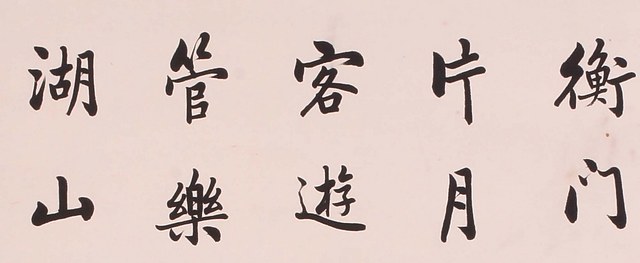 衡门
片月
客遊
管樂
湖山